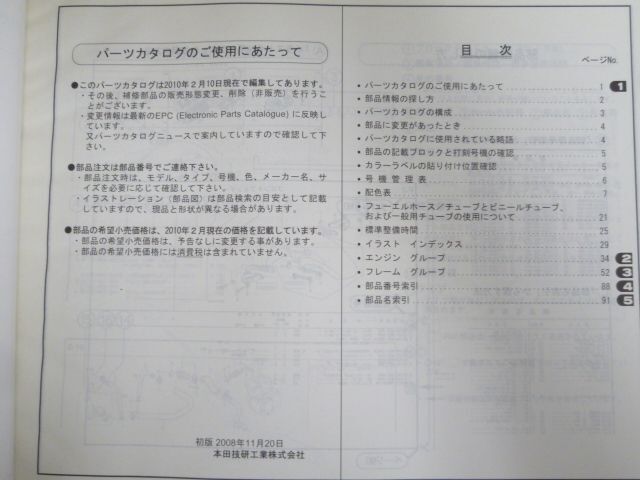 パーツカタログのご使用にあたって
●このパーツカタログは2010年2月10日現在で編集してあります。
・その後、補修部品の販売形態変更、削除（非販売）を行うこ
とがございます。
・変更情報は最新のEPC (Electronic Parts Catalogue) に反映し
ています。
又パーツカタログニュースで案内していますので確認して下
さい。
●部品注文は部品番号でご連絡下さい。
・部品注文時は、モデル、タイプ、号機、色、メーカー名、サ
イズを必要に応じて確認して下さい。
・イラストレーション（部品図）は部品検索の目安として記載
していますので、現品と形状が異なる場合があります。
●部品の希望小売価格は、2010年2月現在の価格を記載しています。
・部品の希望小売価格は、予告なしに変更する事があります。
・部品の希望小売価格には消費税は含まれていません。
初版 2008年11月20日
本田技研工業株式会社
目 次
ページNo.
・パーツカタログのご使用にあたって 1 1
・部品情報の探し方 2
・パーツカタログの構成 3
・部品に変更があったとき 4
・パーツカタログに使用されている略語 4
・部品の記載ブロックと打刻号機の確認 5
・カラーラベルの貼り付け位置確認 5
・号機管理表 6
・配色表 7
・フューエルホース／チューブとビニールチューブ、
および一般用チューブの使用について 21
・標準整備時間 25
・イラスト インデックス 29
・エンジン グループ 34 2
・フレーム グループ 52 3
・部品番号索引 88 4
・部品名索引 91 5